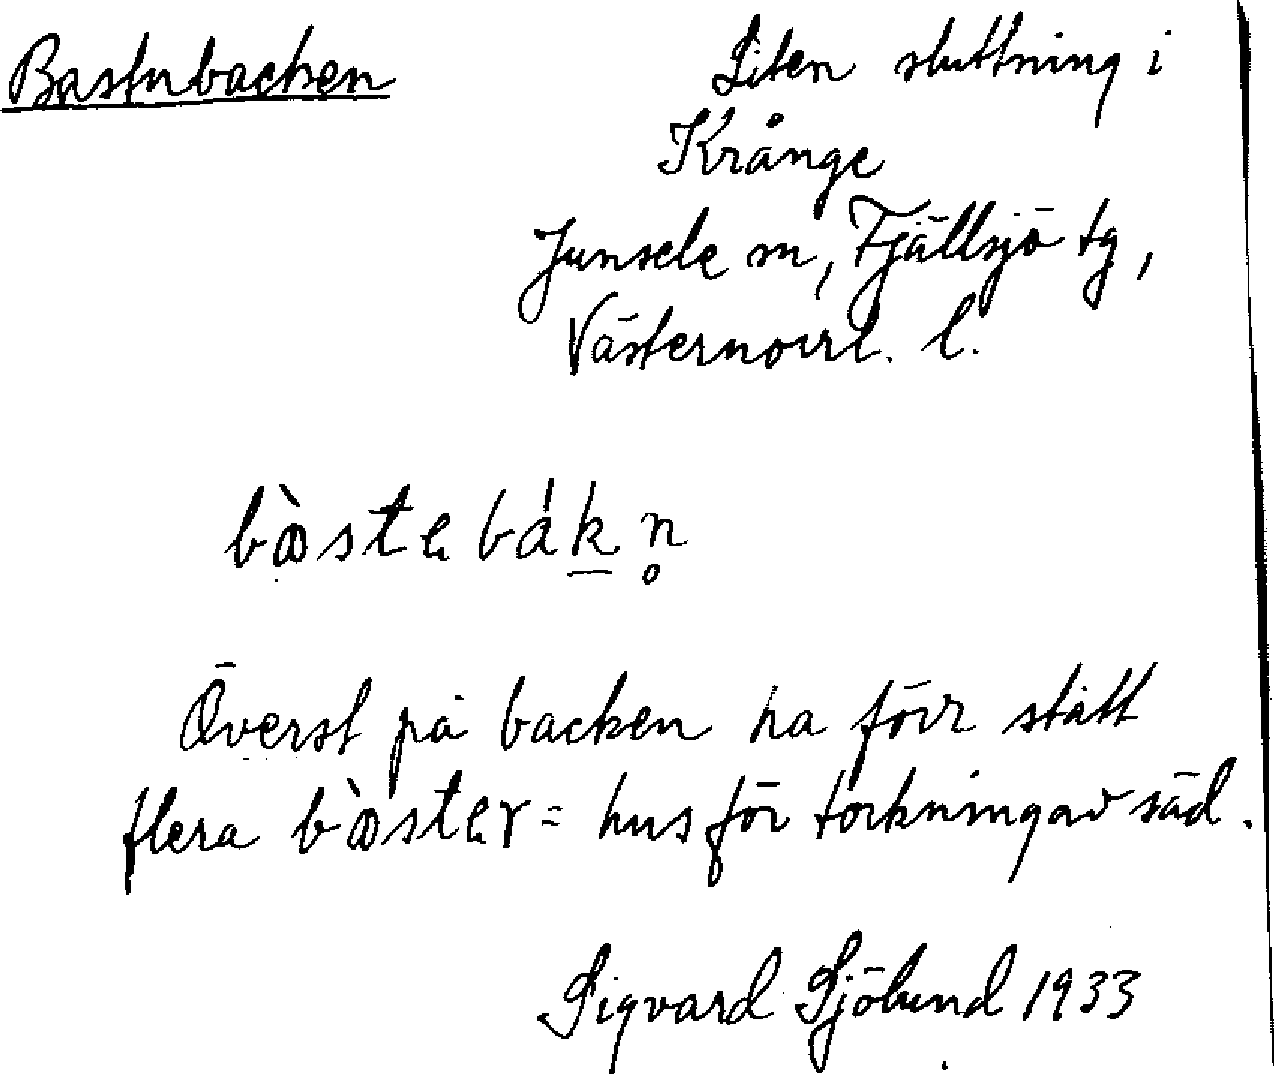 Bastubacken
Liten sluttning i
Krånge
Junsele sn, Fjällsjö tg,
Västernorrl. l.
bàste bákn̥
Överst på backen ha förr stått
flera bàster = hus för torkning av säd.
Sigvard Sjölund 1933